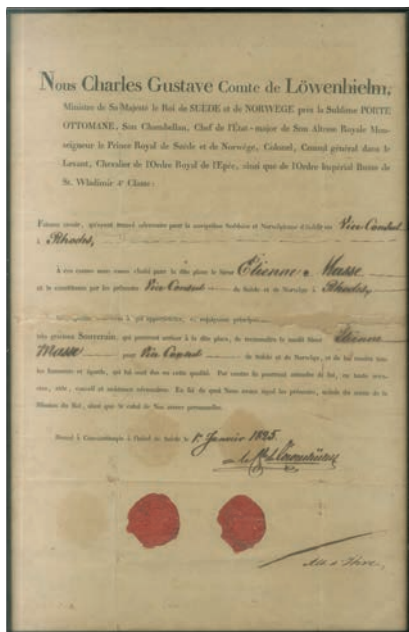 Nous Charles Gustave Comte de Löwenhielm,
Ministre de Sa Majesté le Roi de SUÈDE et de NORWÈGE près la Sublime PORTE
OTTOMANE, Son Chambellan, Chef de l'État-major de Son Altesse Royale Mon-
seigneur le Prince Royal de Suède et de Norwège, Colonel, Consul général dans le
Levant, Chevalier de l'Ordre Royal de l'Épée, ainsi que de l'Ordre Impérial Russe de
St. Wladimir 4e Classe:
Faisons savoir, qu'ayant trouvé nécessaire pour la navigation Suédoise et Norwégienne d'établir un Vice Consul
à Rhodes,
à ces causes nous avons choisi pour la dite place le Sieur Etienne Masse
et le constituons par les présentes Vice Consul de Suède et de Norwège à Rhodes,
très gracieux Souverain, qui pourront arriver à la dite place, de reconnaître le susdit Sieur Etienne
Masse pour Vice Consul de Suède et de Norwège, et de lui rendre tous
les honneurs et égards, qui lui sont dus en cette qualité. Par contre ils pourront attendre de lui, en toute occa-
sion, aide, conseil et assistance nécessaires. En foi de quoi Nous avons signé les présentes, munies du sceau de la
Mission du Roi, ainsi que de celui de Nos armes personnelles.
Donné à Constantinople à l'hôtel de Suède le 1r Janvier 1825.